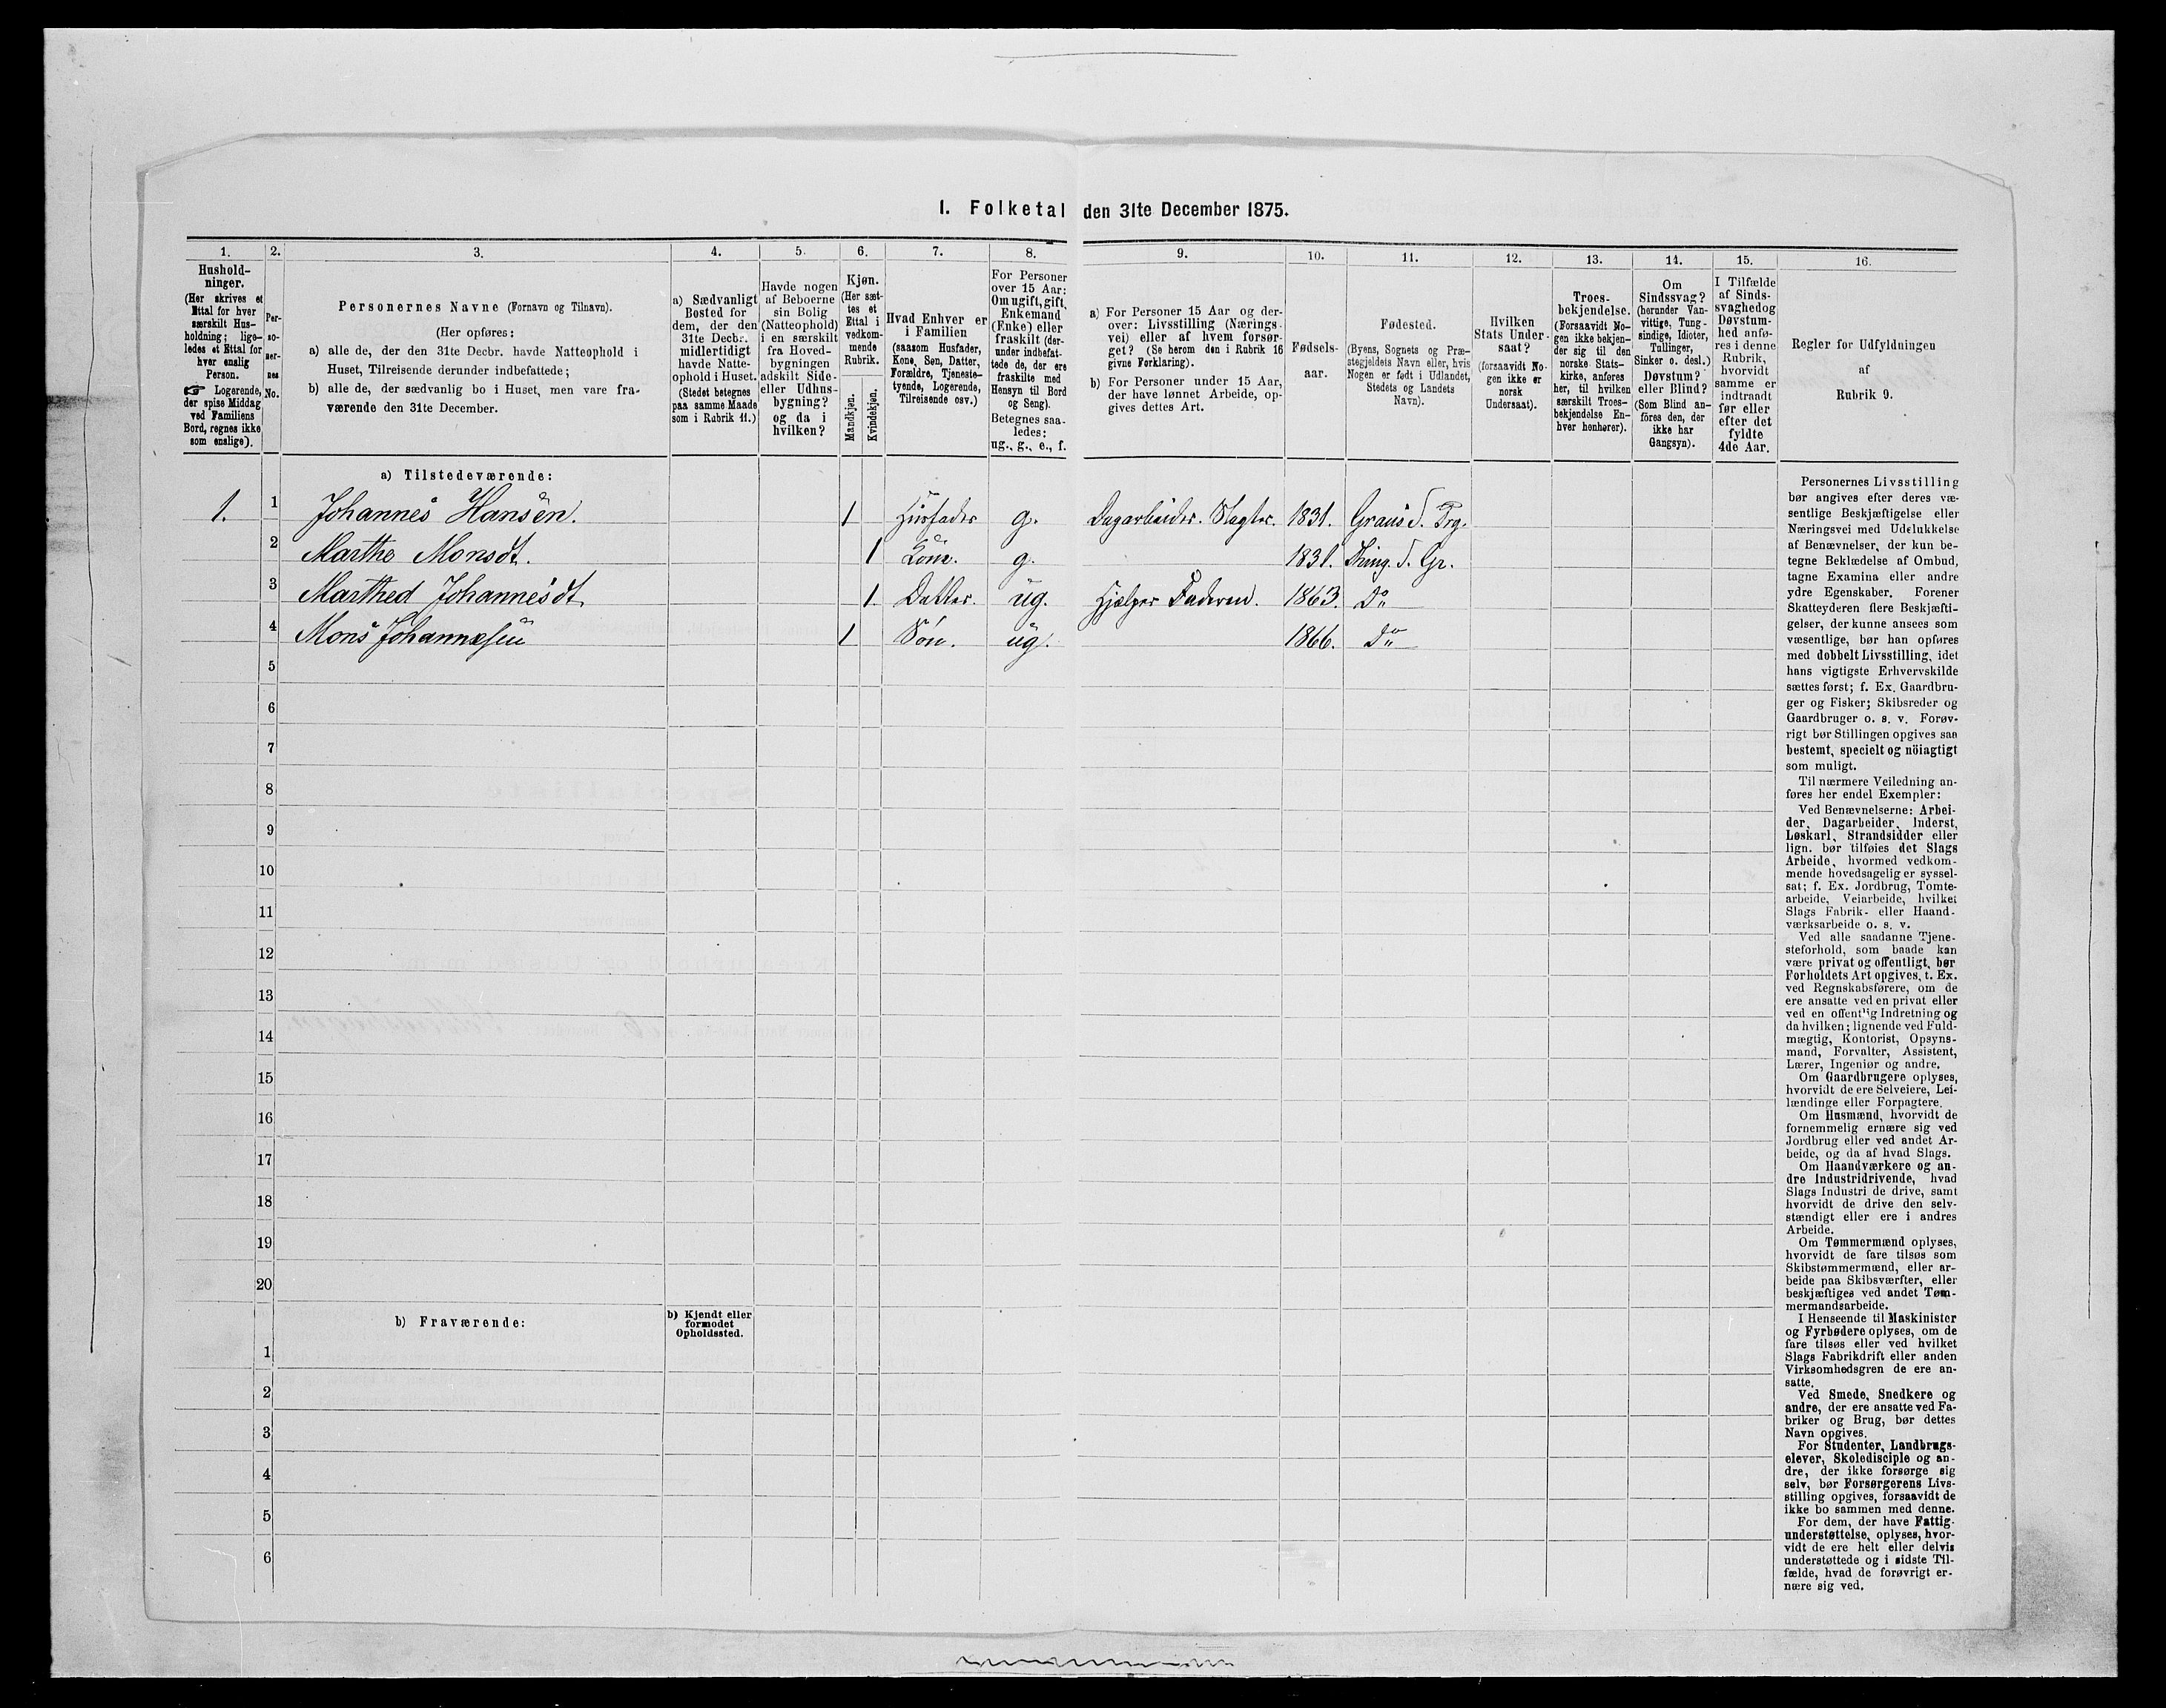 I. Folketal den 31te December 1875.
1.
Hushold-
ninger.
(Her skrives et
Ettal for hver
særskilt Hus-
holdning; lige-
ledes et Ettal for
hver enslig
Person.
☞ Logerende,
der spise Middag
ved Familiens
Bord, regnes ikke
som enslige).
2.
Per-
so-
ner-
nes
No.
3.
Personernes Navne (Fornavn og Tilnavn).
(Her opføres:
a) alle de, der den 31te Decbr. havde Natteophold i
Huset, Tilreisende derunder indbefattede;
b) alle de, der sædvanlig bo i Huset, men vare fra-
værende den 31te December.
4.
a) Sædvanligt
Bosted for
dem, der den
31te Decbr.
midlertidigt
havde Natte-
ophold i Huset.
(Stedet betegnes
paa samme Maade
som i Rubrik 11.)
5.
Havde nogen
af Beboerne
sin Bolig
(Natteophold)
i en særskilt
fra Hoved-
bygningen
adskilt Side-
eller Udhus-
bygning?
og da i
hvilken?
6.
Kjøn.
(Her sæt-
tes et
Ettal i
vedkom-
mende
Rubrik.
Mandkjøn.
Kvindekjøn.
7.
Hvad Enhver er
i Familien
(saasom Husfader,
Kone, Søn, Datter,
Forældre, Tjeneste-
tyende, Logerende,
Tilreisende osv.)
8.
For Personer
over 15 Aar:
Om ugift, gift,
Enkemand
(Enke) eller
fraskilt (der-
under indbefat-
tede de, der ere
fraskilte med
Hensyn til Bord
og Seng).
Betegnes saa-
ledes:
ug., g., e., f.
9.
a) For Personer 15 Aar og der-
over: Livsstilling (Nærings-
vei) eller af hvem forsør-
get? (Se herom den i Rubrik 16
givne Forklaring).
b) For Personer under 15 Aar,
der have lønnet Arbeide, op-
gives dettes Art.
10.
Fødsels-
aar.
11.
Fødested.
(Byens, Sognets og Præ-
stegjeldets Navn eller, hvis
Nogen er født i Udlandet,
Stedets og Landets
Navn).
12.
Hvilken
Stats Under-
saat?
(forsaavidt No-
gen ikke er
norsk
Undersaat).
13.
Troes-
bekjendelse.
(Forsaavidt No-
gen ikke bekjen-
der sig til den
norske Stats-
kirke, anføres
her, til hvilken
særskilt Troes-
bekjendelse En-
hver henhører).
14.
Om
Sindssvag?
(herunder Van-
vittige, Tung-
sindige, Idioter,
Tullinger,
Sinker o. desl.)
Døvstum?
eller Blind?
(Som Blind an-
føres den, der
ikke har
Gangsyn).
15.
I Tilfælde
af Sinds-
svaghedog
Døvstum-
hed anfø-
res i denne
Rubrik,
hvorvidt
samme er
indtraadt
før eller
efter det
fyldte
4de Aar.
16.
Regler for Udfyldningen
af
Rubrik 9.
a) Tilstedeværende:
1. 1 Johannes Hansen. 1 Husfader g. Dagarbeider. Slagter. 1831. Graus S. Prg.
2 Marthe Monsdt. 1 Kone. g. 1831. Thing. S. Gr.
3 Marthed Johannesdt 1. Datter. ug. Hjelper Faderen. 1863. Do
4 Mons Johannesen 1 Søn. ug. 1866. Do
5
6
7
8
9
10
11
12
13
14
15
16
17
18
19
20
b) Fraværende:
b) Kjendt eller
formodet
Opholdssted.
1
2
3
4
5
6
Personernes Livsstilling
bør angives efter deres væ-
sentlige Beskjæftigelse eller
Næringsvei med Udelukkelse
af Benævnelser, der kun be-
tegne Beklædelse af Ombud,
tagne Examina eller andre
ydre Egenskaber. Forener
Skatteyderen flere Beskjæfti-
gelser, der kunne ansees som
væsentlige, bør han opføres
med dobbelt Livsstilling, idet
hans vigtigste Erhvervskilde
sættes først; f. Ex. Gaardbru-
ger og Fisker; Skibsreder og
Gaardbruger o. s. v. Forøv-
rigt bør Stillingen opgives saa
bestemt, specielt og nöiagtigt
som muligt.
Til nærmere Veiledning an-
føres her endel Exempler:
Ved Benævnelserne: Arbei-
der, Dagarbeider, Inderst,
Løskarl, Strandsidder eller
lign. bør tilføies det Slags
Arbeide, hvormed vedkom-
mende hovedsagelig er syssel-
sat; f. Ex. Jordbrug, Tomte-
arbeide, Veiarbeide, hvilket
Slags Fabrik- eller Haand-
værksarbeide o. s. v.
Ved alle saadanne Tjene-
steforhold, som baade kan
være privat og offentligt, bør
Forholdets Art opgives, t. Ex.
ved Regnskabsførere, om de
ere ansatte ved en privat eller
ved en offentlig Indretning og
da hvilken; lignende ved Fuld-
mægtig, Kontorist, Opsyns-
mand, Forvalter, Assistent,
Lærer, Ingeniør og andre.
Om Gaardbrugere oplyses,
hvorvidt de ere Selveiere, Lei-
lændinge eller Forpagtere.
Om Husmænd, hvorvidt de
fornemmelig ernære sig ved
Jordbrug eller ved andet Ar-
beide, og da af hvad Slags.
Om Haandværkere og an-
dre Industridrivende, hvad
Slags Industri de drive, samt
hvorvidt de drive den selv-
stændigt eller ere i andres
Arbeide.
Om Tømmermænd oplyses,
hvorvidt de fare tilsøs som
Skibstømmermænd, eller ar-
beide paa Skibsværfter, eller
beskjæftiges ved andet Tøm-
mermandsarbeide.
I Henseende til Maskinister
og Fyrbødere oplyses, om de
fare tilsøs eller ved hvilket
Slags Fabrikdrift eller anden
Virksomhedsgren de ere an-
satte.
Ved Smede, Snedkere og
andre, der ere ansatte ved Fa-
briker og Brug, bør dettes
Navn opgives.
For Studenter, Landbrugs-
elever, Skoledisciple og an-
dre, der ikke forsørge sig
selv, bør Forsørgerens Livs-
stilling opgives, forsaavidt de
ikke bo sammen med denne.
For dem, der have Fattig-
understøttelse, oplyses, hvor-
vidt de ere helt eller delvis
understøttede og i sidste Til-
fælde, hvad de forøvrigt er-
nære sig ved.